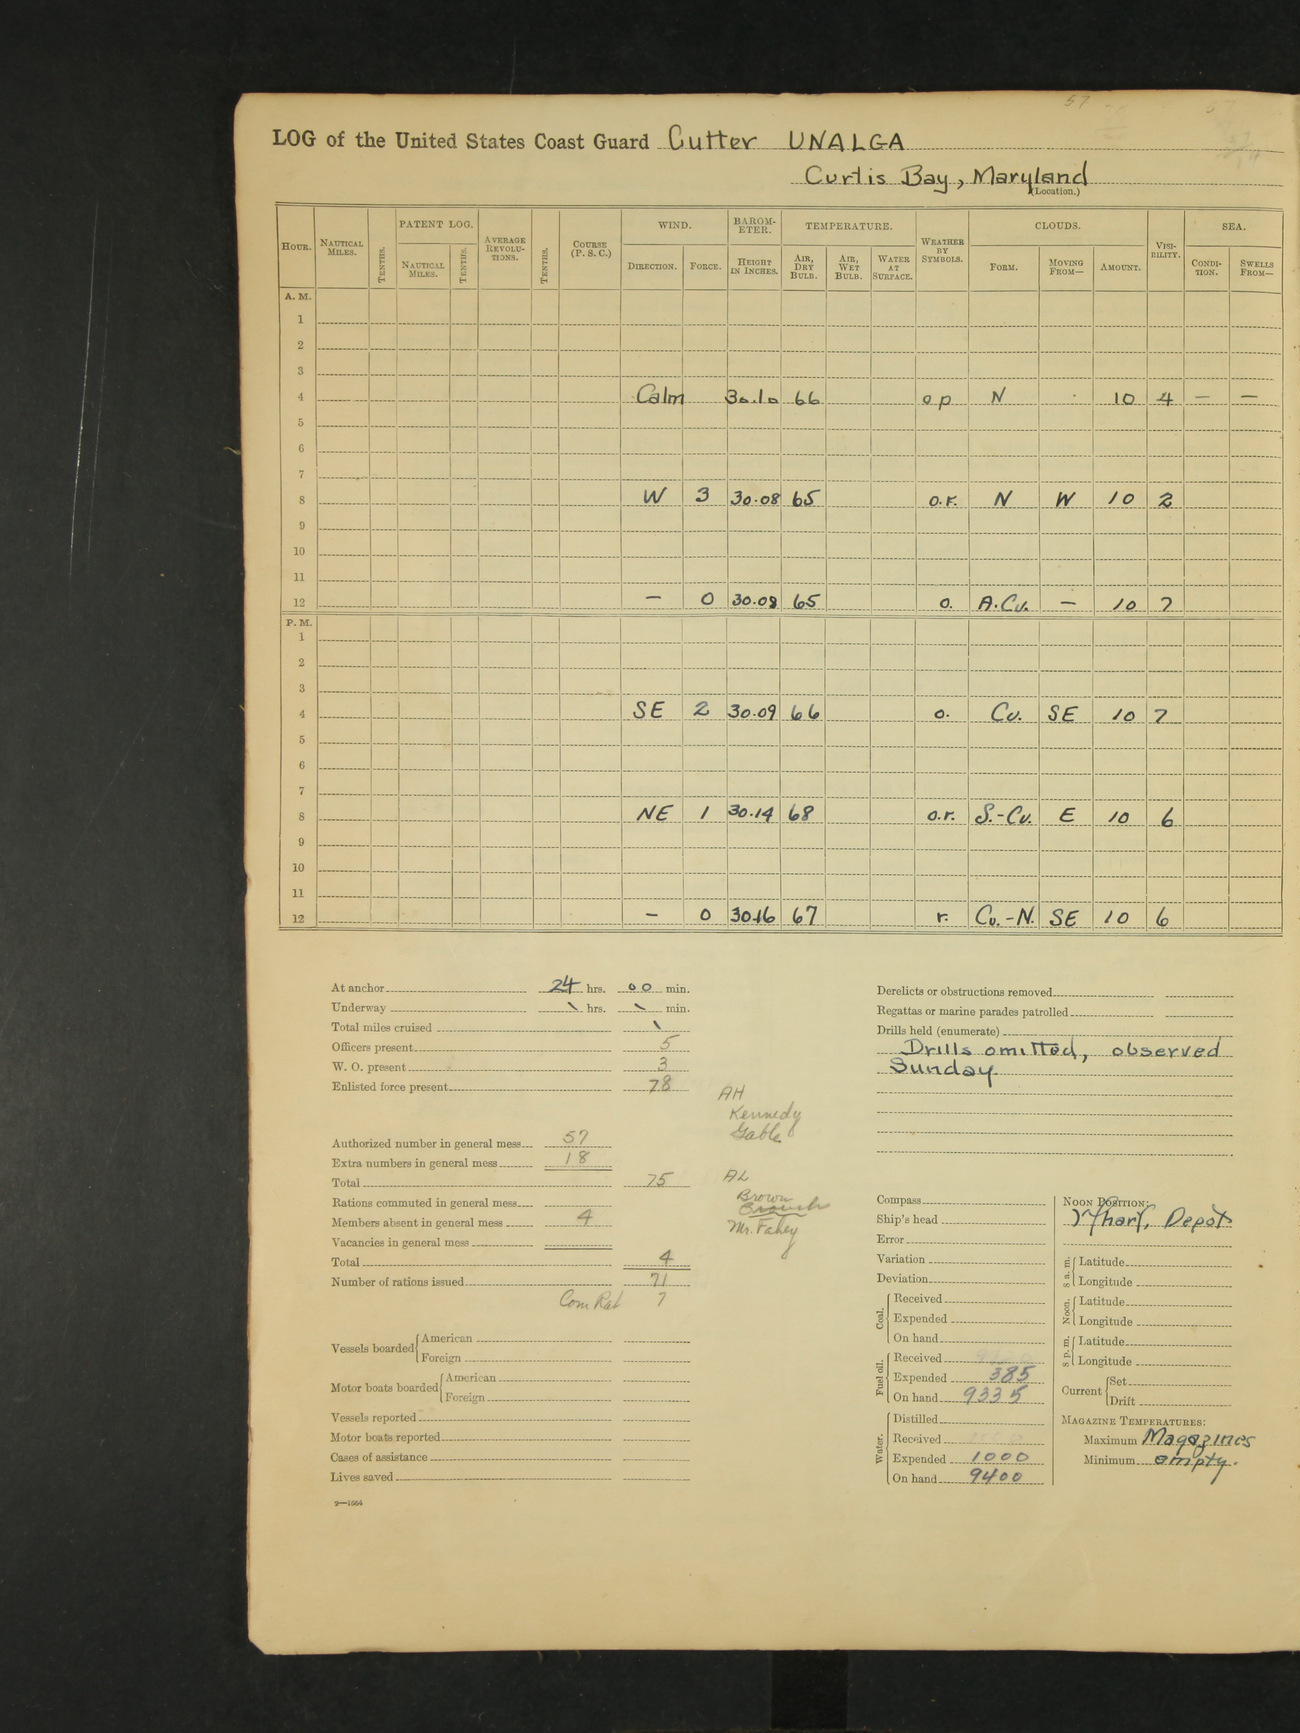 57
LOG of the United States Coast Guard Cutter UNALGA
Curtis Bay, Maryland
(Location.)
HOUR. NAUTICAL MILES. TENTHS. PATENT LOG. NAUTICAL MILES. TENTHS. AVERAGE REVOLUTIONS. TENTHS. COURSE (P. S. C.) WIND. DIRECTION. FORCE. BAROMETER. HEIGHT IN INCHES. TEMPERATURE. AIR, DRY BULB. AIR, WET BULB. WATER AT SURFACE. WEATHER BY SYMBOLS. CLOUDS. FORM. MOVING FROM— AMOUNT. VISIBILITY. SEA. CONDITION. SWELLS FROM—
A. M.
1
2
3
4 Calm 30.10 66 o p N 10 4 — —
5
6
7
8 W 3 30.08 65 o.r. N W 10 2
9
10
11
12 — 0 30.08 65 o. A.Cu. — 10 7
P. M.
1
2
3
4 SE 2 30.09 66 o. Cu. SE 10 7
5
6
7
8 NE 1 30.14 68 o.r. S.-Cu. E 10 6
9
10
11
12 — 0 30.16 67 r. Cu.-N. SE 10 6
At anchor 24 hrs. 00 min.
Underway \ hrs. \ min.
Total miles cruised \
Officers present 5
W. O. present 3
Enlisted force present 78
Authorized number in general mess 57
Extra numbers in general mess 18
Total 75
Rations commuted in general mess
Members absent in general mess 4
Vacancies in general mess
Total 4
Number of rations issued 71
Com Rat 7
Vessels boarded { American
Foreign
Motor boats boarded { American
Foreign
Vessels reported
Motor boats reported
Cases of assistance
Lives saved
9—1664
AH
Kennedy
Gable
AL
Brown
Mr. Fahey
Derelicts or obstructions removed
Regattas or marine parades patrolled
Drills held (enumerate)
Drills omitted, observed
Sunday
Compass
Ship's head
Error
Variation
Deviation
Coal. { Received
Expended
On hand
Fuel oil. { Received
Expended 385
On hand 9335
Water. { Distilled
Received
Expended 1000
On hand 9400
NOON POSITION:
Wharf, Depot
8 a. m. { Latitude
Longitude
Noon. { Latitude
Longitude
8 p. m. { Latitude
Longitude
Current { Set
Drift
MAGAZINE TEMPERATURES:
Maximum Magazines
Minimum empty.